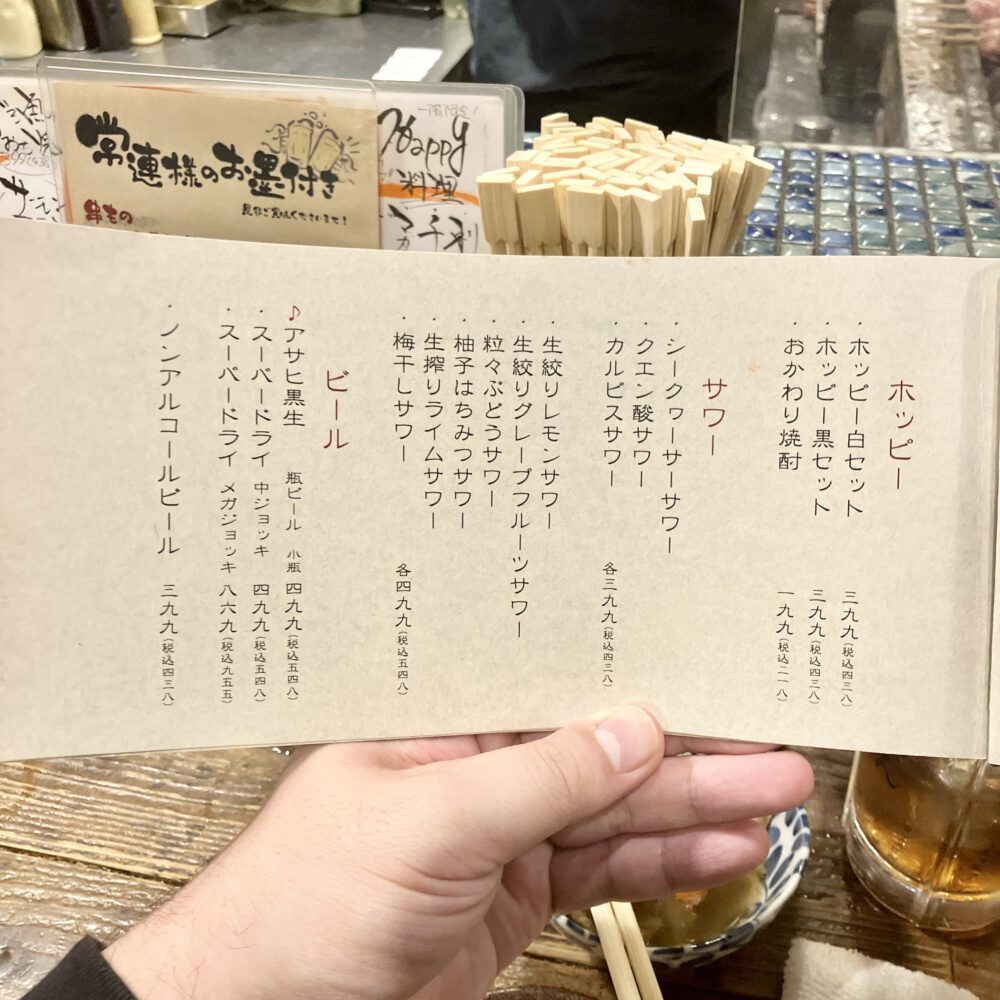 常連様のお墨付き
是非ご賞味くださいませ!
一階限定
Happy
料理
ホッピー
・ホッピー白セット 三九九(税込四三八)
・ホッピー黒セット 三九九(税込四三八)
・おかわり焼酎 一九九(税込二一八)
サワー
・シークヮーサーサワー
・クエン酸サワー
・カルピスサワー 各三九九(税込四三八)
・生絞りレモンサワー
・生絞りグレープフルーツサワー
・粒々ぶどうサワー
・柚子はちみつサワー
・生搾りライムサワー
・梅干しサワー 各四九九(税込五四八)
ビール
♪アサヒ黒生 瓶ビール 小瓶 四九九(税込五四八)
・スーパードライ 中ジョッキ 四九九(税込五四八)
・スーパードライ メガジョッキ 八六九(税込九五五)
・ノンアルコールビール 三九九(税込四三八)